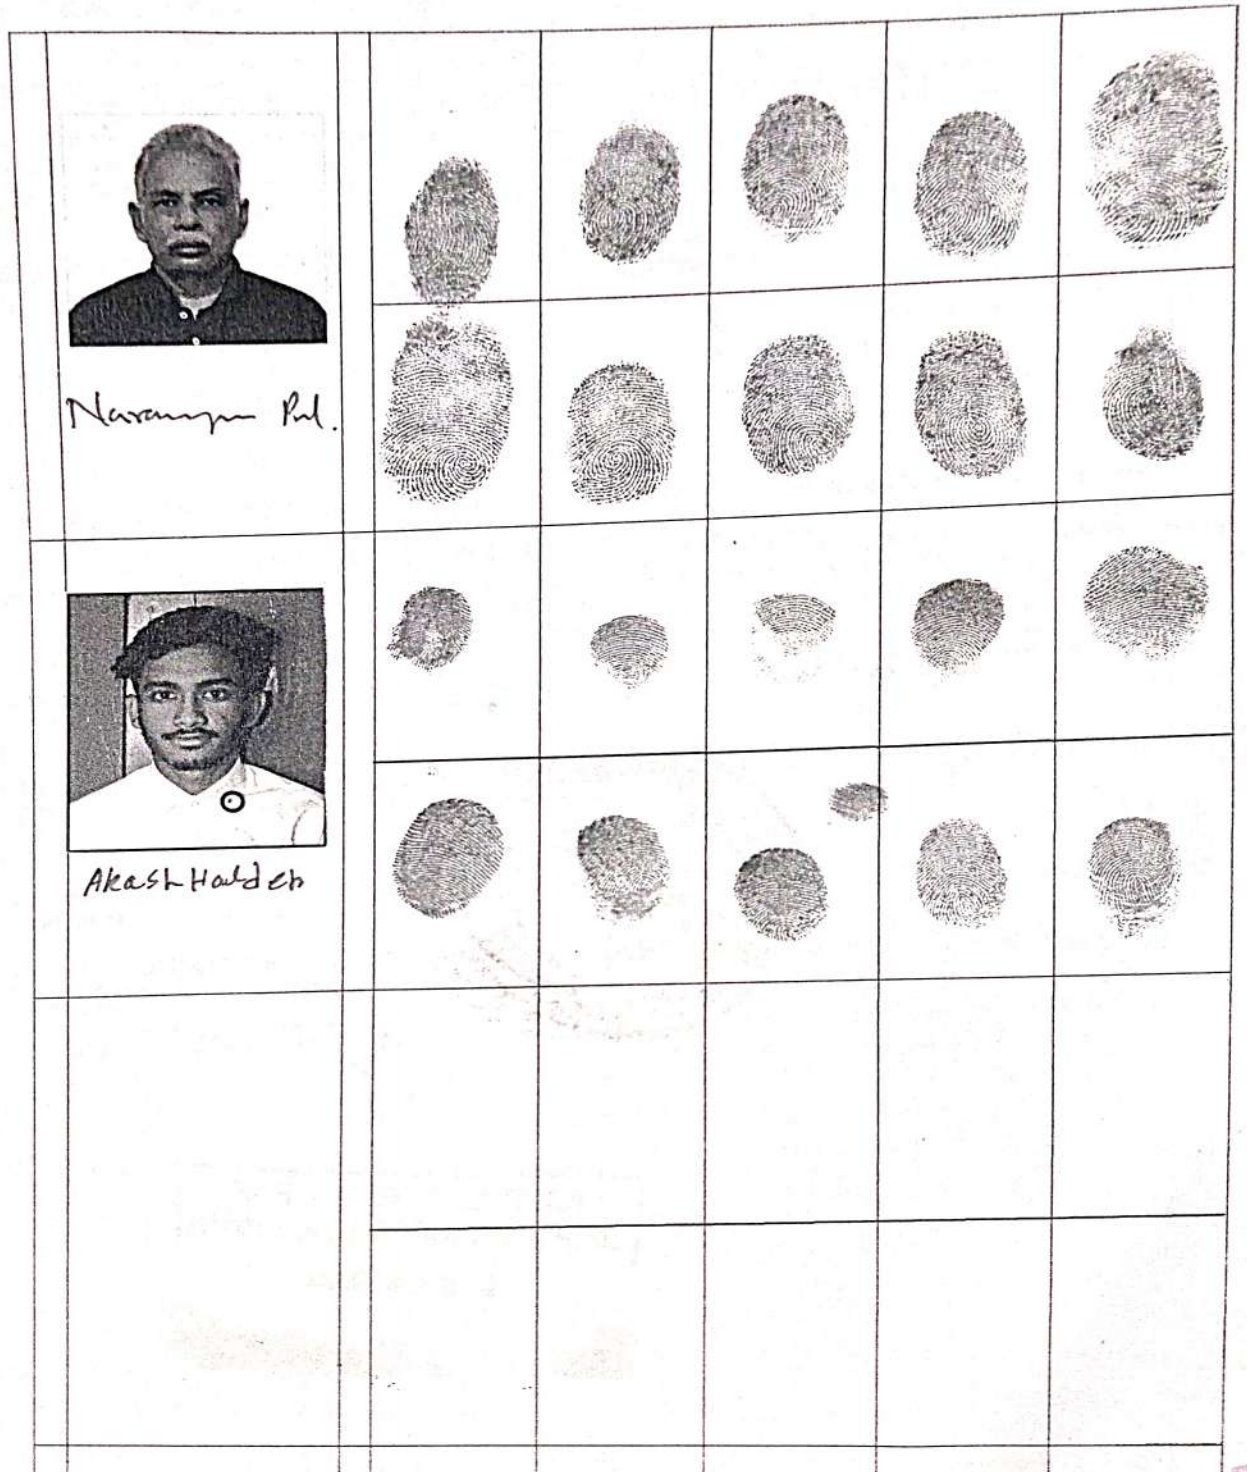 Narayan Pal.
Akash Halder